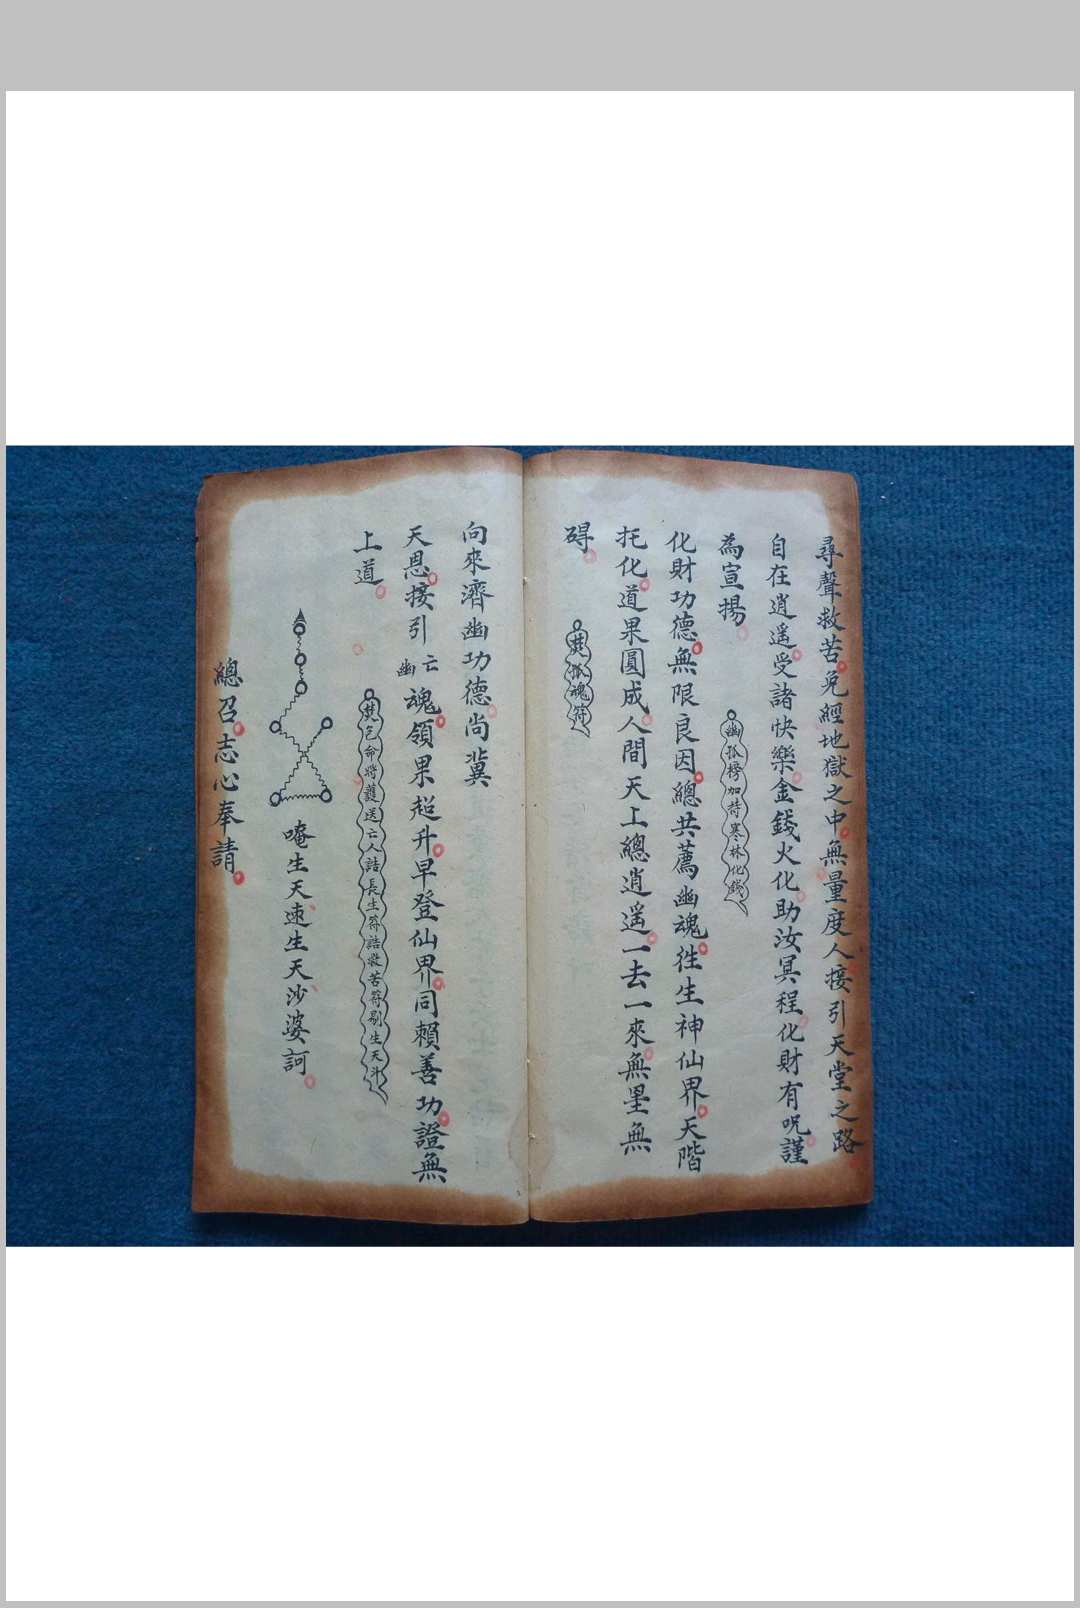 尋聲救苦免經地獄之中無量度人接引天堂之路
自在逍遥受諸快樂金錢火化助汝冥程化財有呪謹
為宣揚
幽孤榜加持寒林化錢
化財功德無限良因總共薦幽魂徃生神仙界天階
托化道果圓成人間天上總逍遥一去一來無罣無
碍
焚孤魂符
向來濟幽功德尚冀
天恩接引亡幽魂領果超升早登仙界同賴善功證無
上道
焚乞命將護送亡人誥長生符誥救苦符剔生天斗
唵生天速生天沙婆訶
總召志心奉請